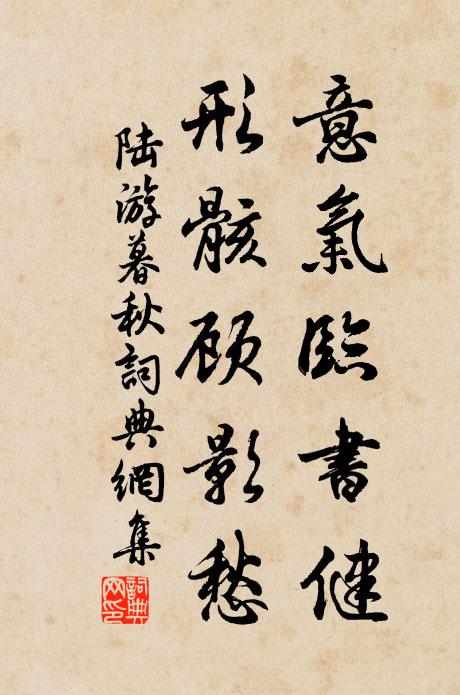 意氣臨書健
形骸顾影愁
陆游暮秋詞典網集
詞典网印